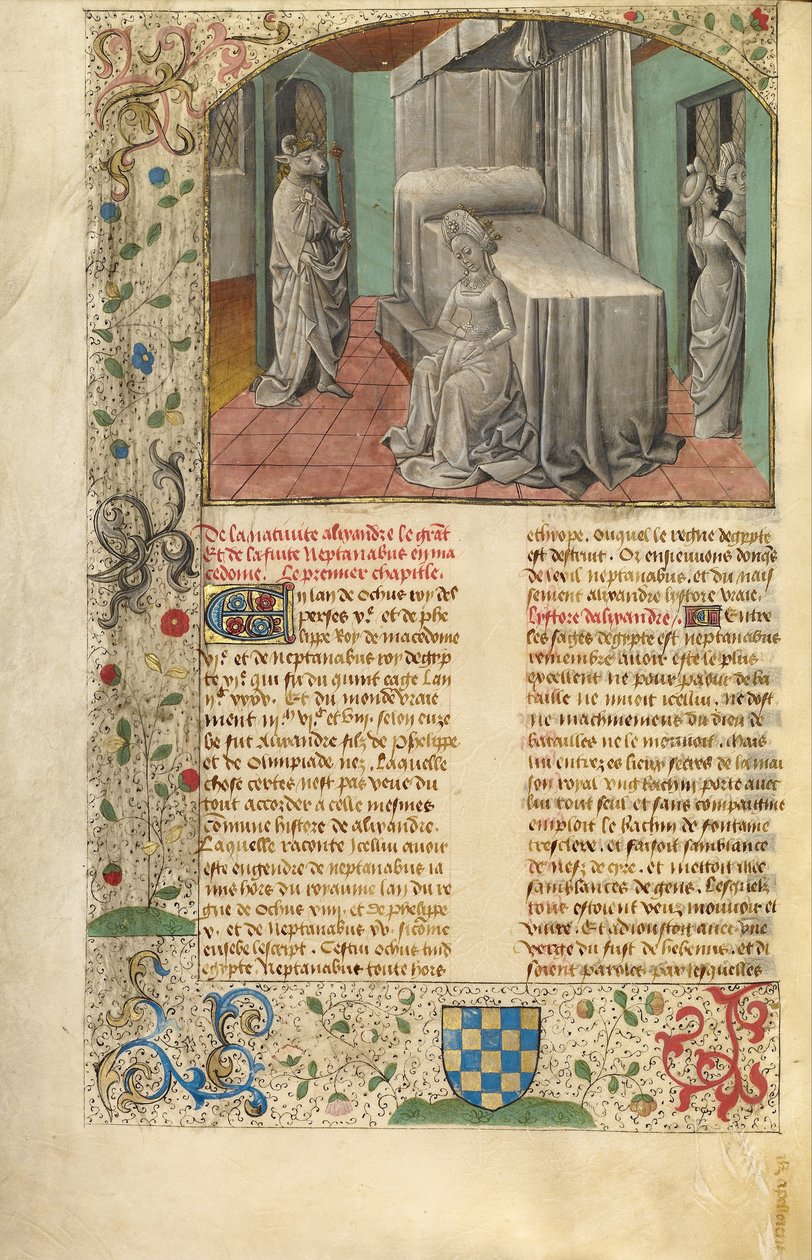 De la natiuite alixandre le grãt
Et de la fuite Neptanabus en ma
cedome. Le premier chapitle.
En lan de Ochus roy des
perses vᵉ. et de phe
lippe Roy de macedome
viᵉ. et de neptanabus roy degyp
te viᵉ. qui fu du quint eage lan
Et du monde vraie
ment selon euze
be fut Alixandre filz de Phelippe
et de Olimpiade nez. Laquelle
chose certes nest pas venue du
tout accorder a celle mesmes
cõmune histore de alixandre.
Laquelle raconte Icellui auoir
este engendre de neptanabus ia
mis hors du royaume lan du re
gne de Ochus et de phelippe
v. et de Neptanabus sicome
eusebe lescript. Cestui Ochus
egypte Neptanabus toute hors
ethiope. Ouquel le regne degypte
est destruit. Or ensieuuons donqs
de leuil neptanabus. et du nais
sement alixandre lystore vraie.
Lystore dalixandre. Entre
les sages degypte est neptanabus
remembre auoir este le plus
excellent ne pour paour de ba
taille ne icellui. ne dost
ne machinemens du dieu de
batailles ne le mouuoit. Mais
lui entrez es lieux secres de la mai
son royal vng bachin porte auec
lui tout seul et sans compaignie
emploit le bachin de fontaine
tresclere. et faisoit samblance
de nefz de cyre. et mettoit
samblances de gens. Lesquelz
tous estoient veuz mouuoir et
viure. Et adioustoit auec vne
verge du fust de hebenus. et di
soient paroles par lesquelles